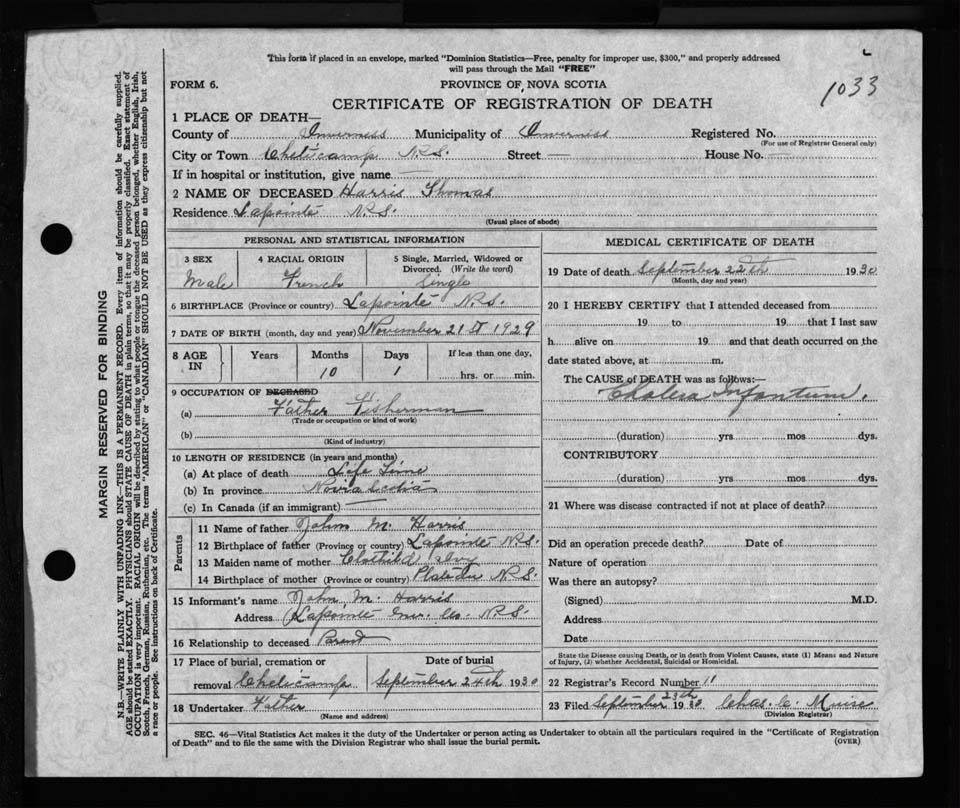 This form if placed in an envelope, marked "Dominion Statistics—Free, penalty for improper use, $300," and properly addressed
will pass through the Mail "FREE"
FORM 6.
PROVINCE OF NOVA SCOTIA
1033
CERTIFICATE OF REGISTRATION OF DEATH
1 PLACE OF DEATH—
County of Inverness Municipality of Inverness Registered No.
(For use of Registrar General only)
City or Town Cheticamp N.S. Street — House No. —
If in hospital or institution, give name —
2 NAME OF DECEASED Harris Thomas
Residence Lapointe N.S.
(Usual place of abode)
PERSONAL AND STATISTICAL INFORMATION
3 SEX 4 RACIAL ORIGIN 5 Single, Married, Widowed or
Divorced. (Write the word)
Male French Single
6 BIRTHPLACE (Province or country) Lapointe N.S.
7 DATE OF BIRTH (month, day and year) November 21st 1929
8 AGE IN Years Months Days If less than one day,
10 1 hrs. or min.
9 OCCUPATION OF DECEASED
(a) Father Fisherman
(Trade or occupation or kind of work)
(b)
(Kind of industry)
10 LENGTH OF RESIDENCE (in years and months)
(a) At place of death Life Time
(b) In province Nova Scotia
(c) In Canada (if an immigrant) —
Parents
11 Name of father John M. Harris
12 Birthplace of father (Province or country) Lapointe N.S.
13 Maiden name of mother
14 Birthplace of mother (Province or country) Plateau N.S.
15 Informant's name John M. Harris
Address Lapointe Inv. Co. N.S.
16 Relationship to deceased Parent
17 Place of burial, cremation or Date of burial
removal Cheticamp September 24th 1930
18 Undertaker Father
(Name and address)
MEDICAL CERTIFICATE OF DEATH
19 Date of death September 22th 1930
(Month, day and year)
20 I HEREBY CERTIFY that I attended deceased from
19 to 19 that I last saw
h alive on 19 and that death occurred on the
date stated above, at m.
The CAUSE of DEATH was as follows:—
Cholera Infantum.
(duration) yrs mos dys.
CONTRIBUTORY
(duration) yrs mos dys.
21 Where was disease contracted if not at place of death?
Did an operation precede death? Date of
Nature of operation
Was there an autopsy?
(Signed) M.D.
Address
Date
State the Disease causing Death, or in death from Violent Causes, state (1) Means and Nature
of Injury, (2) whether Accidental, Suicidal or Homicidal.
22 Registrar's Record Number 11
23 Filed September 23th 1930 Chas. C. Muise
(Division Registrar)
SEC. 46—Vital Statistics Act makes it the duty of the Undertaker or person acting as Undertaker to obtain all the particulars required in the "Certificate of Registration
of Death" and to file the same with the Division Registrar who shall issue the burial permit. (OVER)
MARGIN RESERVED FOR BINDING
N.B.—WRITE PLAINLY WITH UNFADING INK—THIS IS A PERMANENT RECORD. Every item of information should be carefully supplied.
AGE should be stated EXACTLY. PHYSICIANS should STATE CAUSE OF DEATH in plain terms, so that it may be properly classified. Exact statement of
OCCUPATION is very important. RACIAL ORIGIN will be described by stating to what people or tongue the deceased person belonged, whether English, Irish,
Scotch, French, German, Russian, Ruthenian, etc. The terms "AMERICAN" or "CANADIAN" SHOULD NOT BE USED as they express citizenship but not
a race or people. See instructions on back of Certificate.